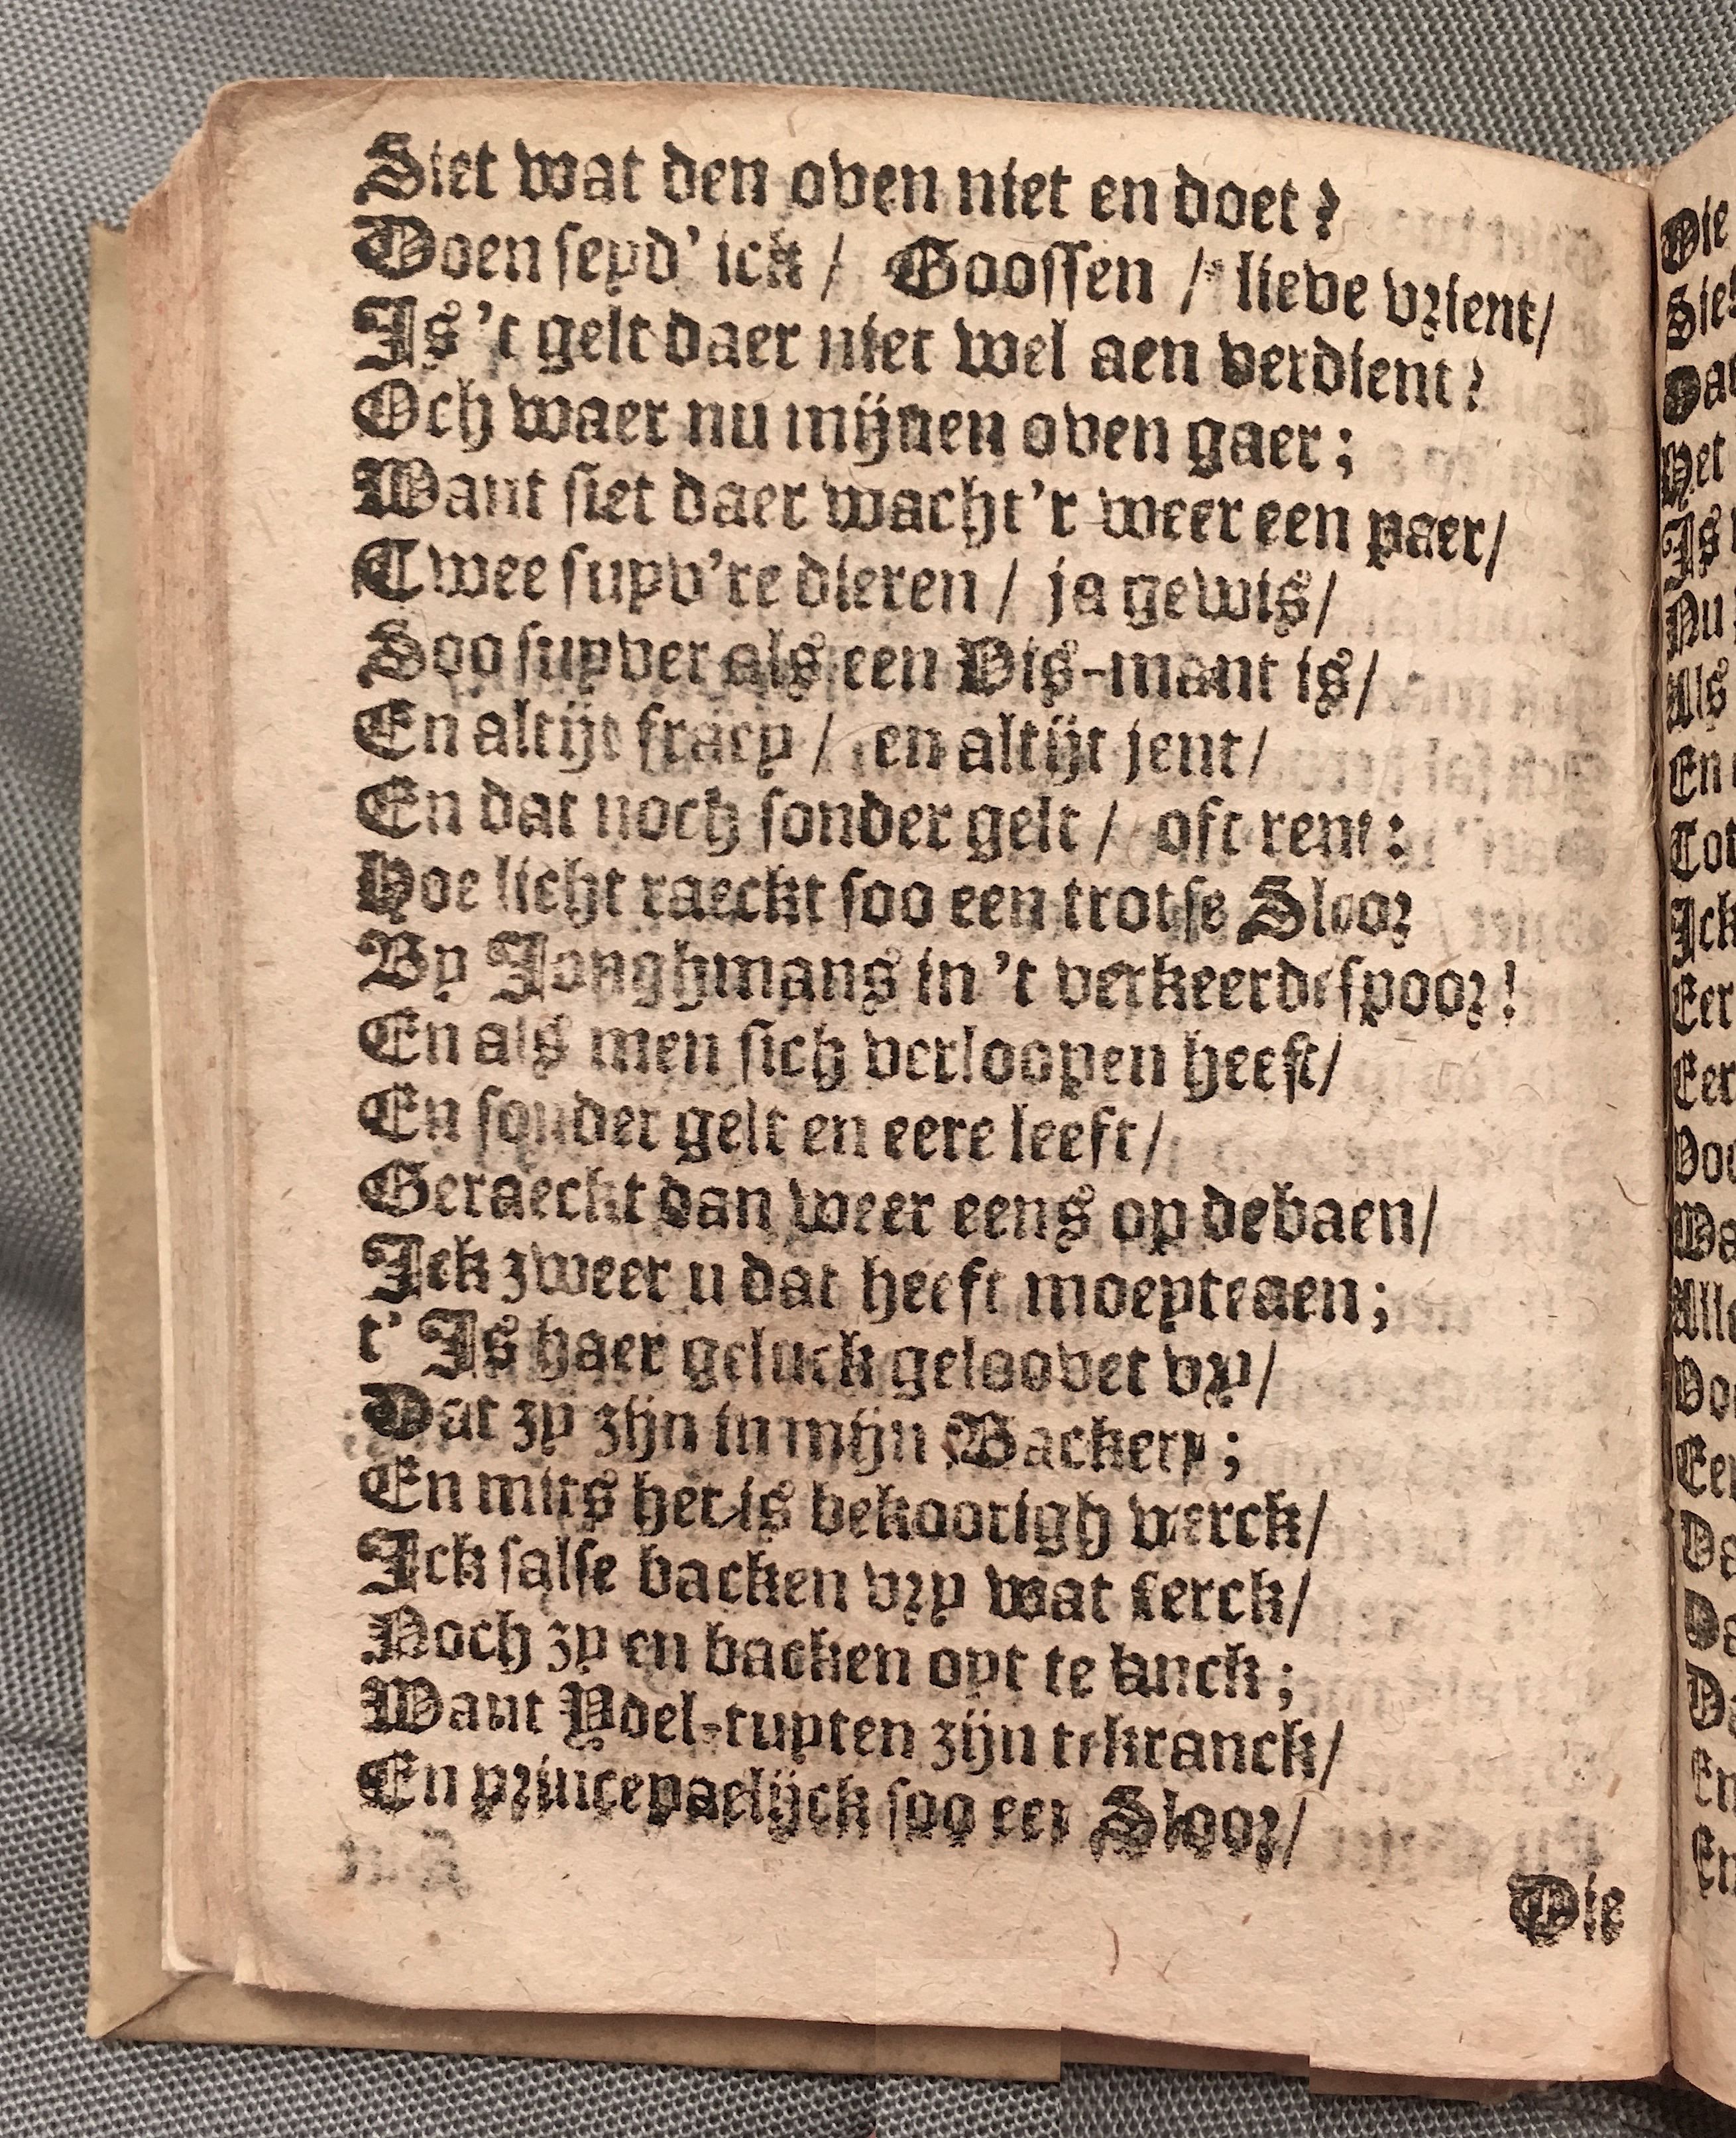 Siet wat den oven niet en doet?
Doen seyd' ick / Goossen / lieve vrient/
Is 't gelt daer niet wel aen verdient?
Och waer nu mijnen oven gaer;
Want siet daer wacht'r weer een paer/
Twee suyv're dieren / ja gewis/
Soo suyver als een Dis-mant is/
En altijt fraey / en altijt jent/
En dat noch sonder gelt / oft rent:
Hoe licht raeckt soo een trotse Sloor
By Jonghmans in 't verkeerde spoor!
En als men sich verloopen heeft/
En sonder gelt en eere leeft/
Geraeckt dan weer eens op de baen/
Ick zweer u dat heeft moeyte aen;
t' Is haer geluck geloovet vry/
Dat zy zijn in mijn Backery;
En mits het is bekoorigh werck/
Ick salse backen vry wat sterck/
Noch zy en backen oyt te lanck;
Want Ydel-tuyten zijn te kranck/
En princepaelijck soo een Sloor/
Die
Die
Siet
Dat
Het
Is
Nu
Als
En
Ick
Eer
Eer